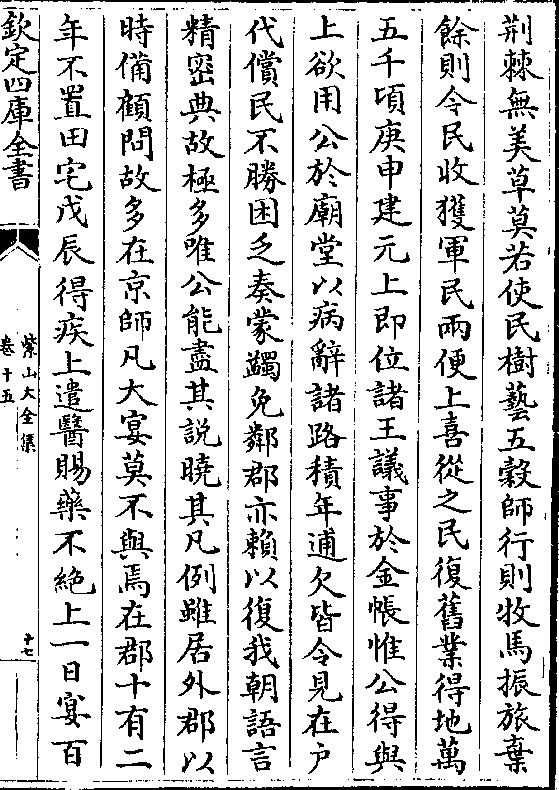 荆棘無美草莫若使民樹藝五穀師行則牧馬振旅棄
餘則令民收獲軍民兩便上喜從之民復舊業得地萬
五千頃庚申建元上即位諸王議事於金帳惟公得與
上欲用公於廟堂以病辭諸路積年逋欠皆令見在户
代償民不勝困乏奏蒙蠲免鄰郡亦賴以復我朝語言
精密典故極多唯公能盡其說曉其凡例雖居外郡以
時備顧問故多在京師凡大宴莫不與焉在郡十有二
年不置田宅戊辰得疾上遣醫賜藥不絶上一日宴百
欽定四庫全書
紫山大全集
卷十五
十七